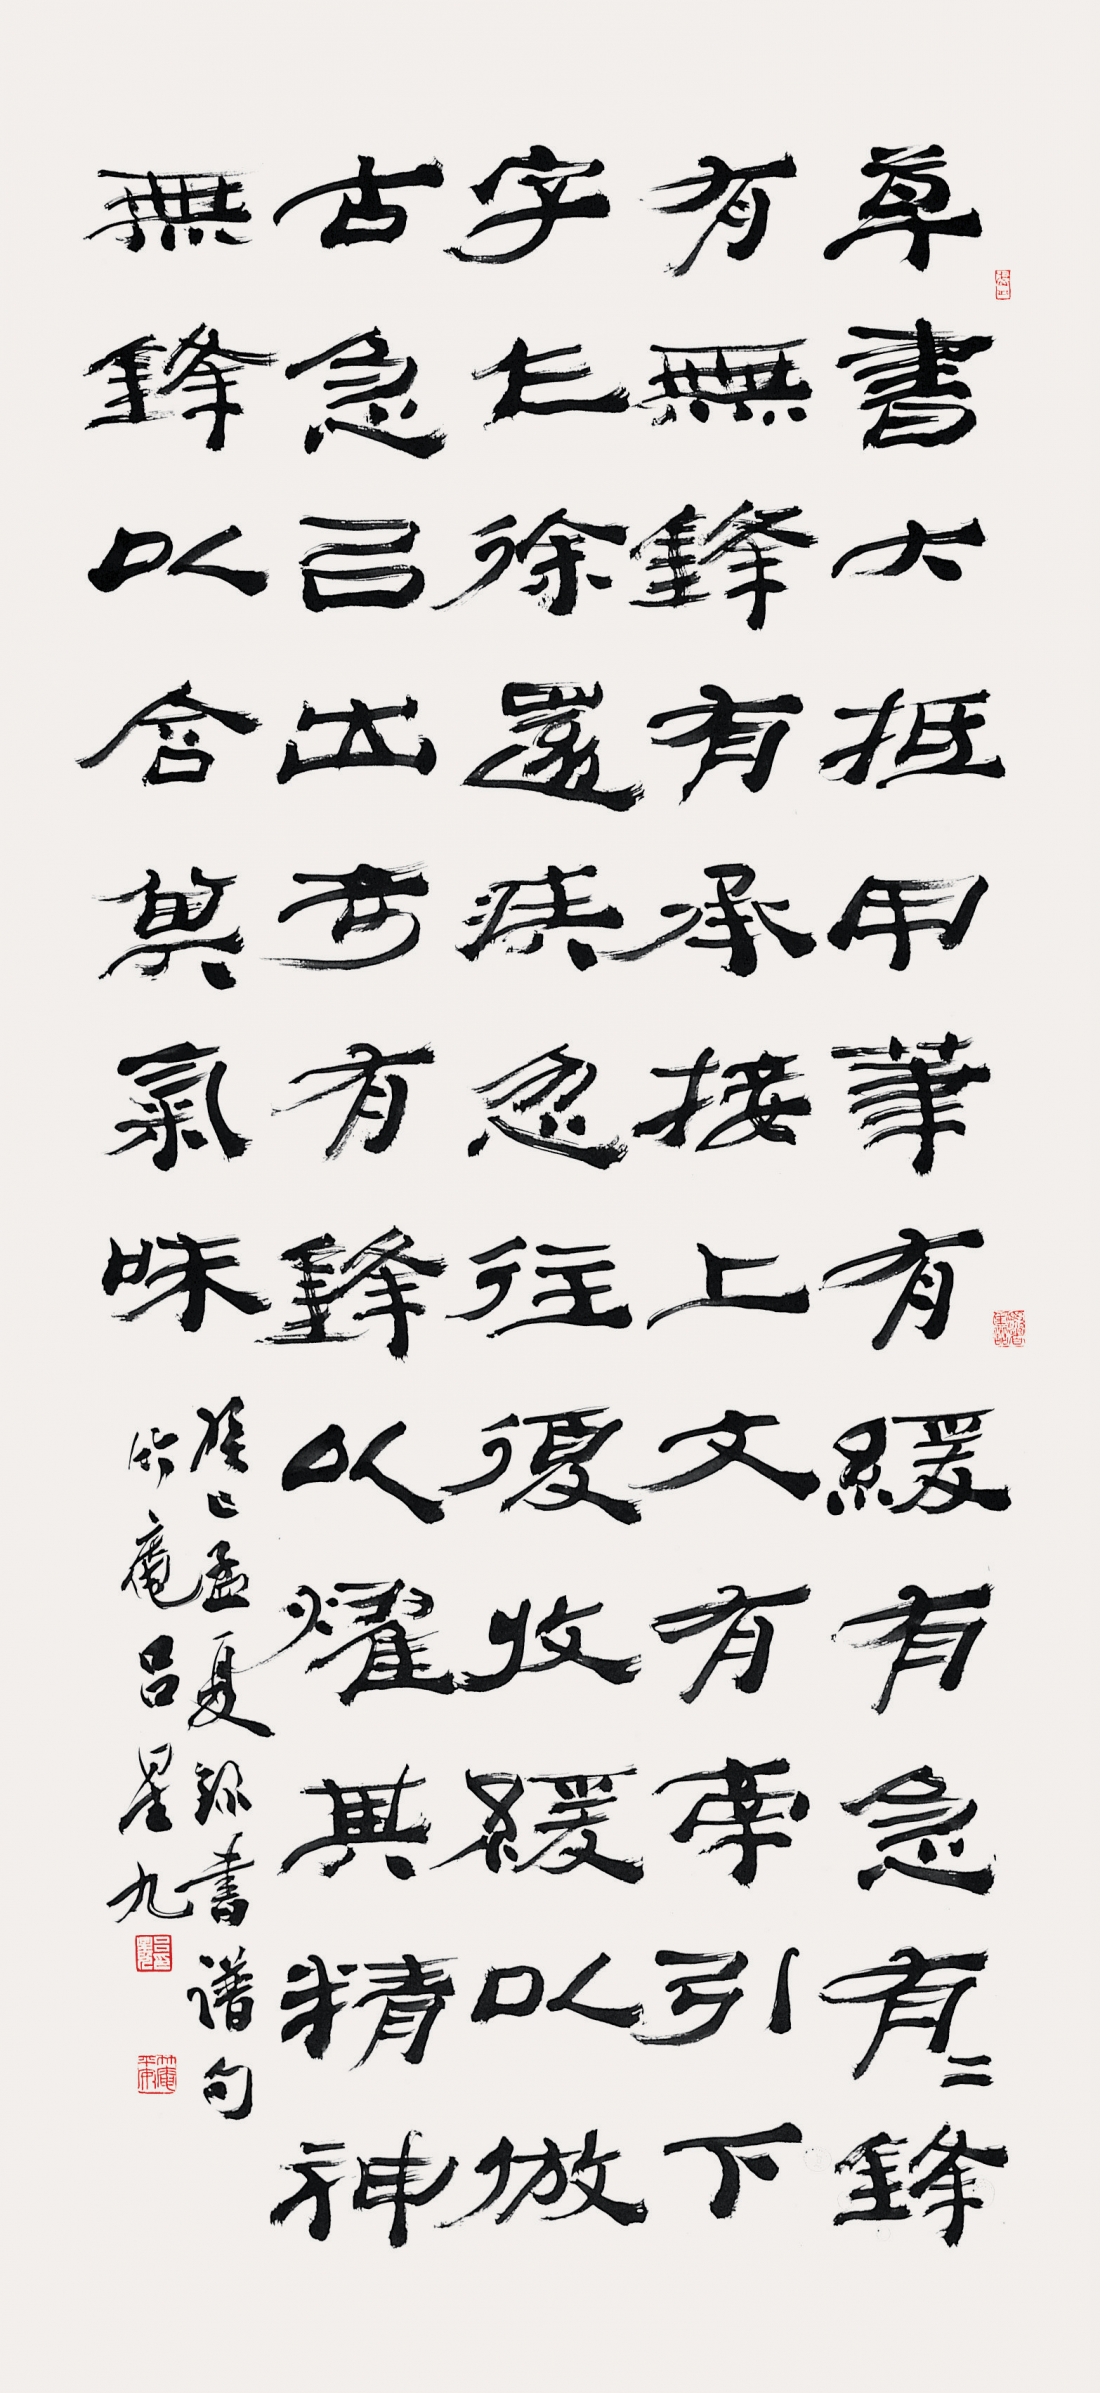 草書大抵用筆有緩有急有〻鋒
有無鋒有承接上文有牽引下
字乍徐還疾忽往復收緩以倣
古急㠯出奇有鋒以耀其精神
無鋒以含其氣味
癸巳孟夏録書譜句
竹庵吕星九